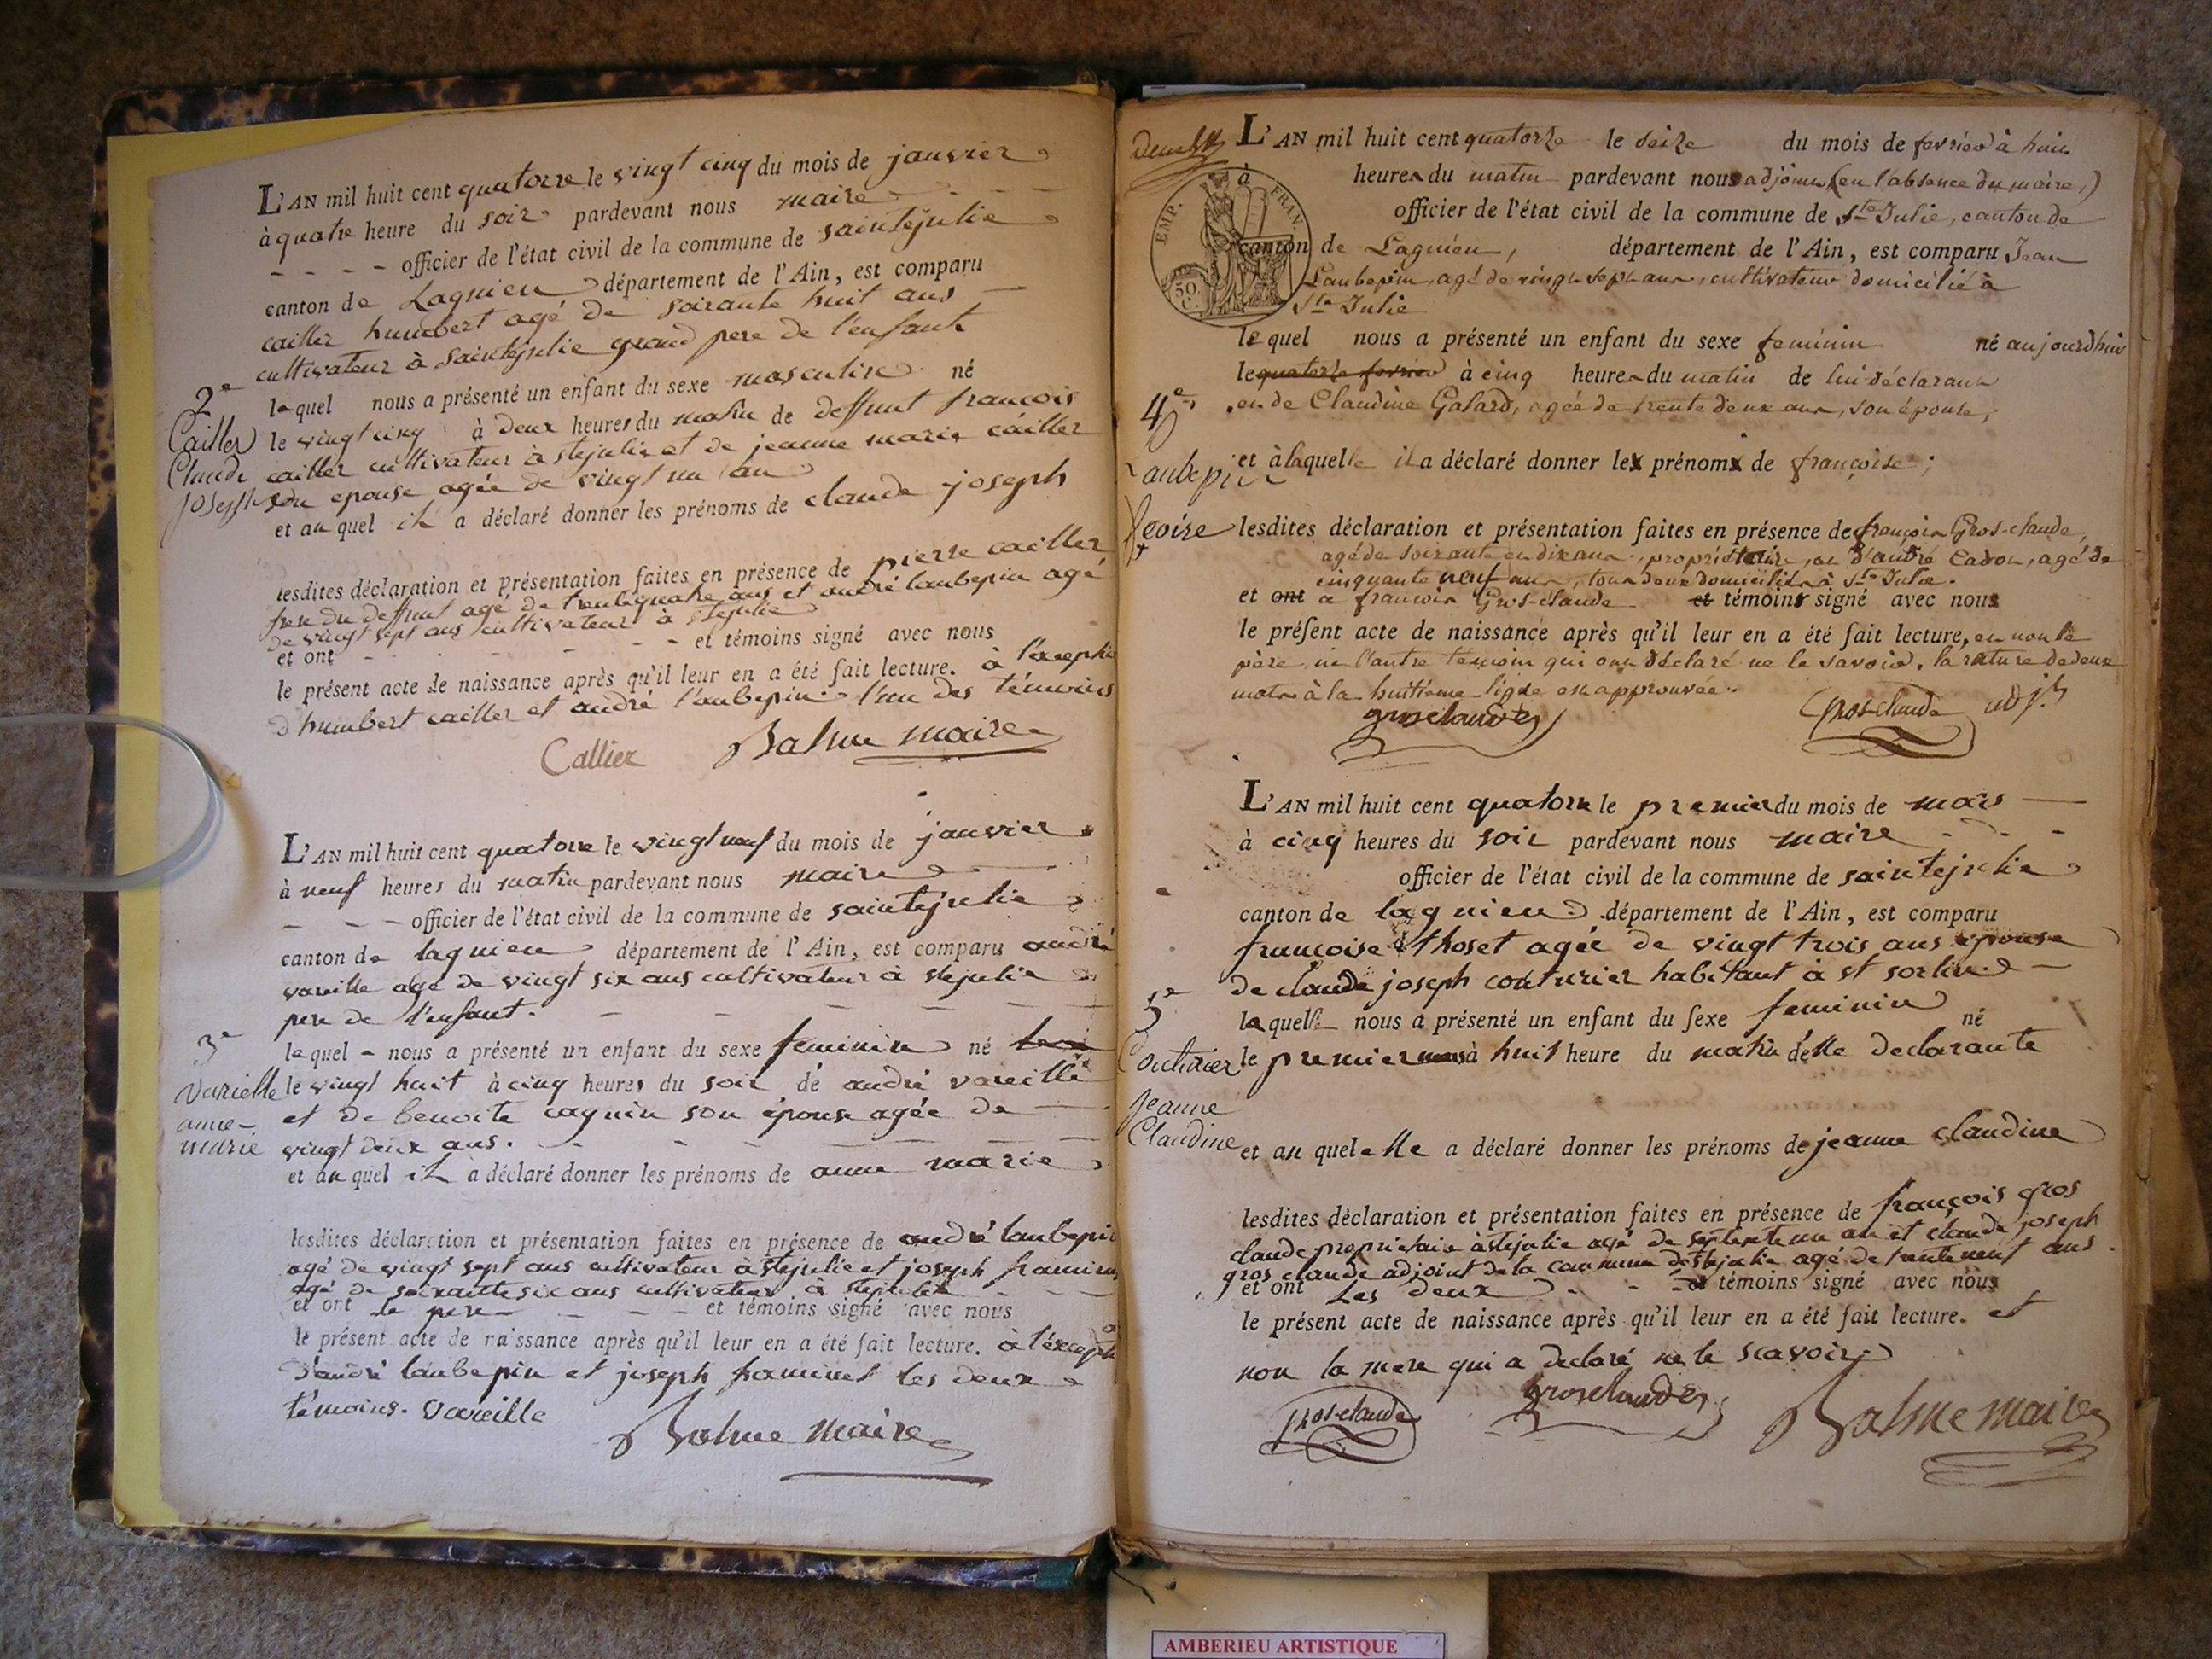 L'AN mil huit cent quatorze le vingt cinq du mois de janvier
à quatre heure du soir pardevant nous maire
officier de l'état civil de la commune de saintejulie
canton de Lagnieu département de l'Ain, est comparu
cailler humbert agé de soixante huit ans
cultivateur à saintejulie grand pere de l'enfant
2e
lequel nous a présenté un enfant du sexe masculin né
Cailler
le vingt cinq à deux heures du matin de deffunt francois
Claude
cailler cultivateur à stejulie et de jeanne marie cailler
joseph
son epouse agée de vingt un an
et au quel il a déclaré donner les prénoms de claude joseph
lesdites déclaration et présentation faites en présence de pierre cailler
frere du deffunt agé de trentequatre ans et andré laubepin agé
de vingt sept ans cultivateur à stejulie
et ont et témoins signé avec nous
le présent acte de naissance après qu'il leur en a été fait lecture. à l'excepti
d'humbert cailler et andré laubepin l'un des témoins
Callier Balme maire
L'AN mil huit cent quatorze le vingt neuf du mois de janvier
à neuf heures du matin pardevant nous maire
officier de l'état civil de la commune de saintejulie
canton de lagnieu département de l'Ain, est comparu andré
vareille agé de vingt six ans cultivateur à stejulie
pere de l'enfant.
3e
lequel nous a présenté un enfant du sexe feminin né
Varielle
le vingt huit à cinq heures du soir de andré vareille
anne-
et de benoite cagnin son épouse agée de
marie
vingt deux ans.
et au quel il a déclaré donner les prénoms de anne marie
lesdites déclaration et présentation faites en présence de andré laubepin
agé de vingt sept ans cultivateur à stejulie et joseph
agé de soixante six ans cultivateur à stejulie
et ont le pere et témoins signé avec nous
le présent acte de naissance après qu'il leur en a été fait lecture. à l'excepti
d'andré laubepin et joseph les deux
témoins. Vareille
Balme maire
L'AN mil huit cent quatorze le seize du mois de fevrier à huit
à heures du matin pardevant nous adjoint (en l'absence du maire,)
EMP. FRAN.
officier de l'état civil de la commune de Ste Julie, canton de
canton de Lagnieu, département de l'Ain, est comparu Jean
50 C.
Laubepin, agé de vingt sept ans, cultivateur domicilié à
Ste Julie
lequel nous a présenté un enfant du sexe feminin né aujourdhui
le quatorze fevrier à cinq heures du matin de lui déclarant
4e
et de Claudine Galard, agée de trente deux ans, son épouse,
Laubepin
et à laquelle il a déclaré donner les prénoms de françoise;
lesdites déclaration et présentation faites en présence de françois Gros-claude,
agé de soixante et dix ans, propriétaire, et d'andré Cadou, agé de
cinquante neuf ans, tous deux domiciliés à Ste Julie.
et ont a francois Gros-claude et témoins signé avec nous
le présent acte de naissance après qu'il leur en a été fait lecture, et non le
père, ni l'autre temoin qui ont déclaré ne le savoir. la rature de deux
mots à la huitieme ligne est approuvée.
grosclaude Gros-claude adjt
L'AN mil huit cent quatorze le premier du mois de mars
à cinq heures du soir pardevant nous maire
officier de l'état civil de la commune de saintejulie
canton de lagnieu département de l'Ain, est comparu
francoise thoset agée de vingt trois ans epouse
de claude joseph couturier habitant à st sorlin
5e
laquelle nous a présenté un enfant du sexe feminin né
Couturier
le premier mars à huit heure du matin d'elle declarante
Jeanne
Claudine
et au quel elle a déclaré donner les prénoms de jeanne claudine
lesdites déclaration et présentation faites en présence de françois gros
claude proprietaire à stejulie agé de septente un an et claude joseph
gros claude adjoint de la commune de stejulie agé de trente neuf ans
et ont Les deux et témoins signé avec nous
le présent acte de naissance après qu'il leur en a été fait lecture. et
non la mere qui a declaré ne le scavoir
Gros-claude grosclaude Balme maire
AMBERIEU ARTISTIQUE